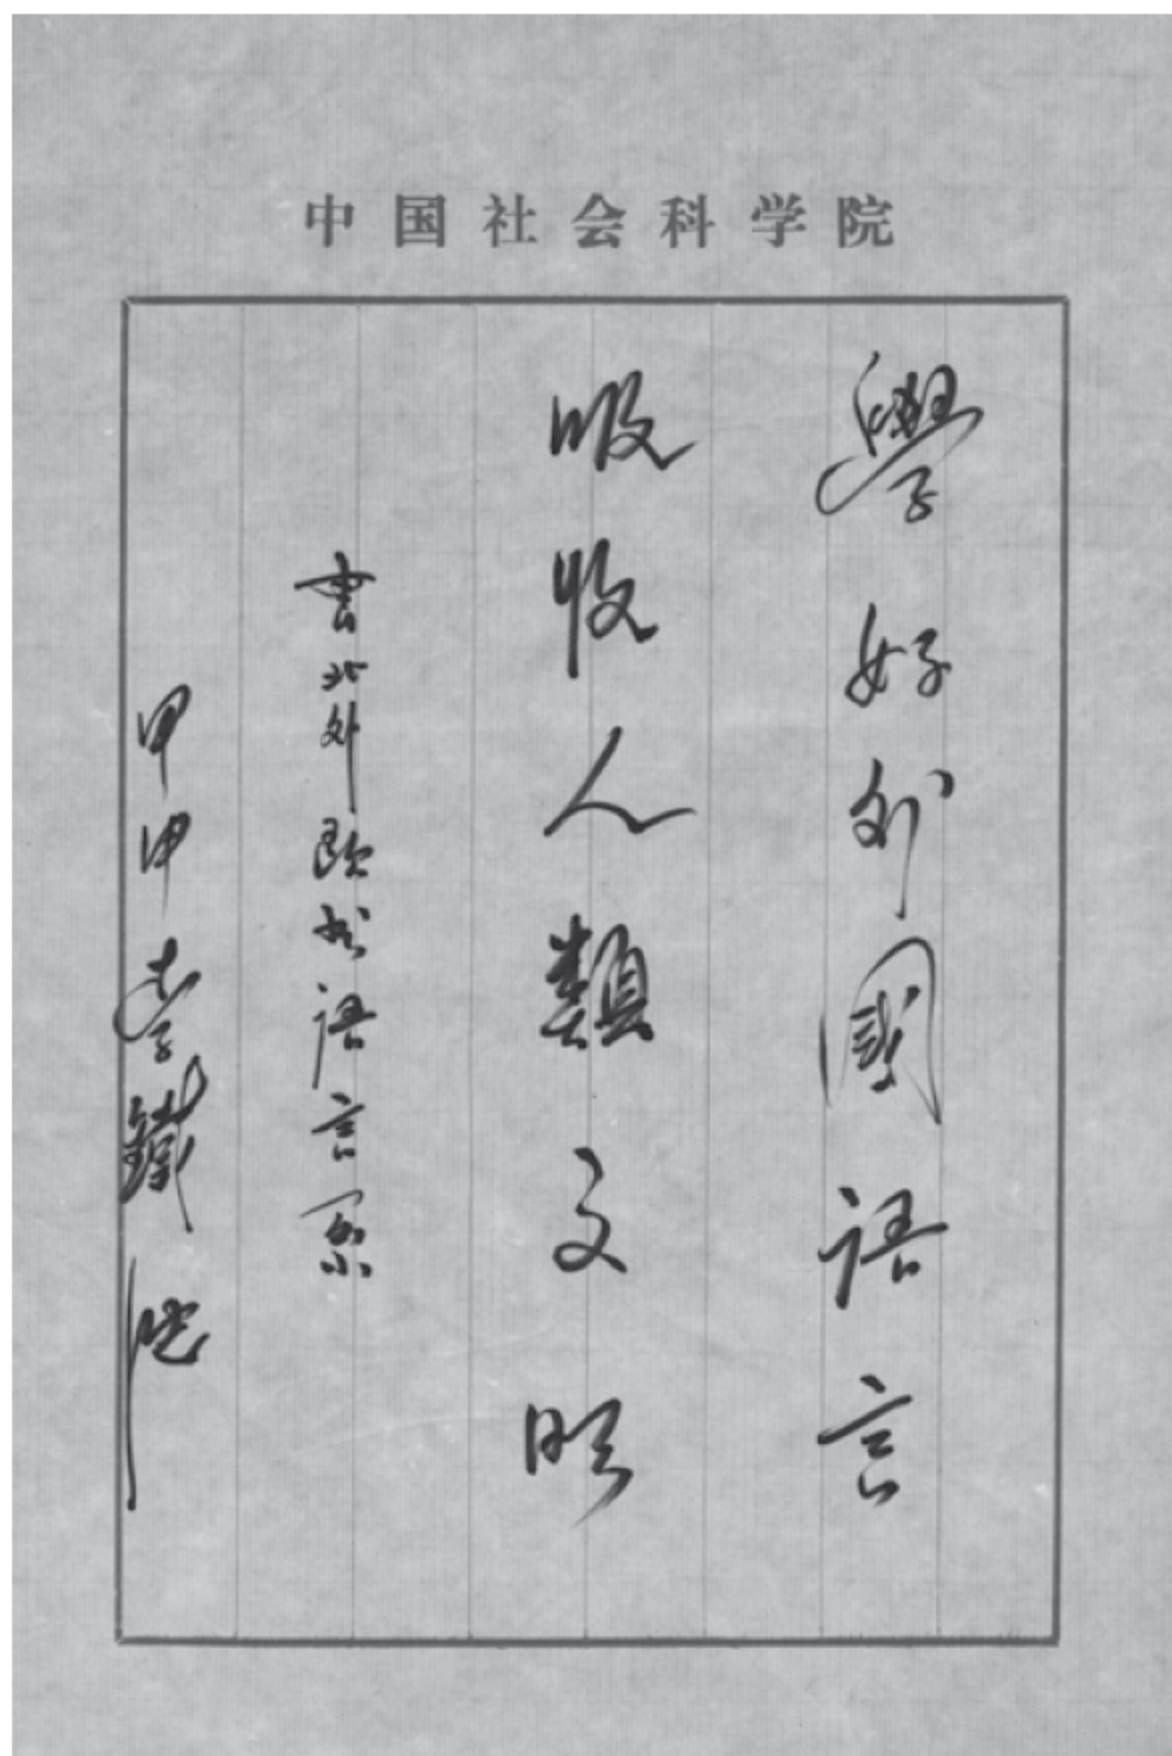 中国社会科学院
學好外國語言
吸收人類文明
書北外歐洲語言系
甲申李鐵映